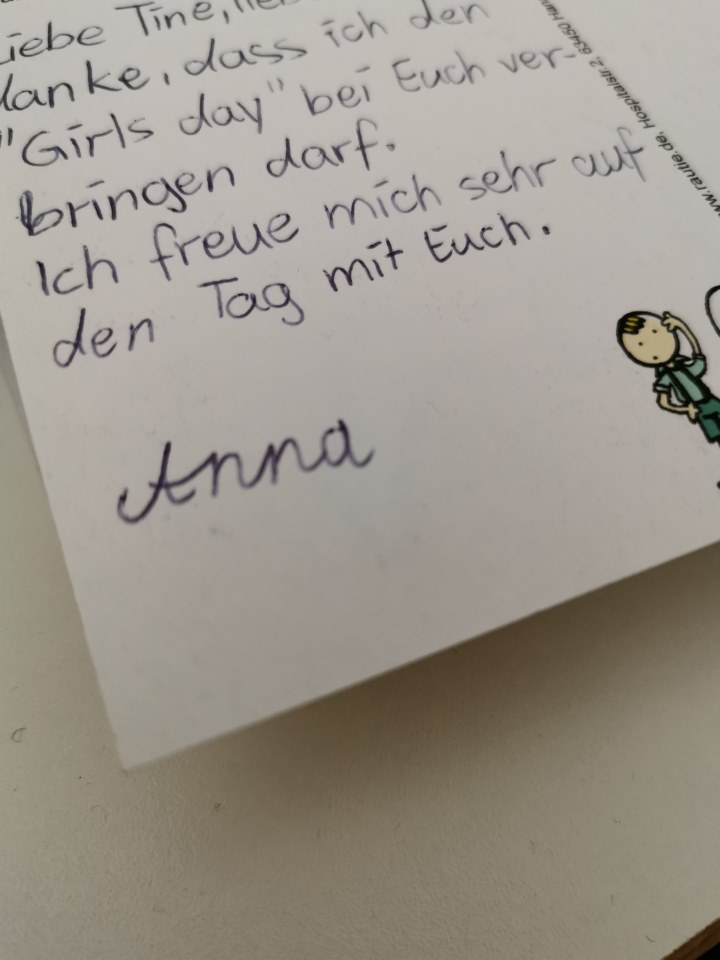 Liebe Tine,
danke, dass ich den
"Girls day" bei Euch ver-
bringen darf.
Ich freue mich sehr auf
den Tag mit Euch.
Anna
www.raute.de, Hospitalstr. 2, 63450